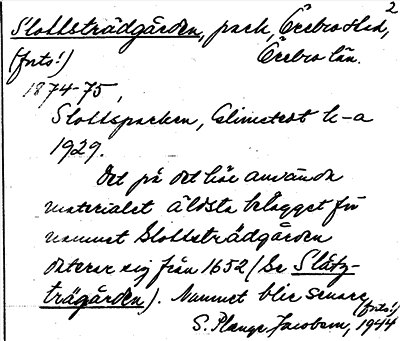 2
Slottsträdgården, park, Örebro stad,
(forts!) Örebro län.
1874-75,
Slottsparken, Almstedt k-a
1929.
Det på det här använda
materialet äldsta belägget för
namnet Slottsträdgården
daterar sig från 1652 (Se Slåtz-
trägården). Namnet blir senare
(forts!)
S. Plange Jacobson, 1944